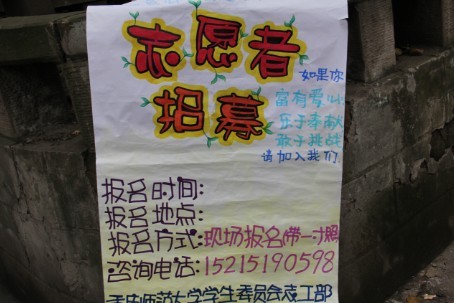 志愿者
招募
如果你
富有爱心
乐于奉献
敢于挑战
请加入我们
报名时间:
报名地点:
报名方式:现场报名带一寸照
咨询电话:15215190598
重庆师范大学学生委员会志工部